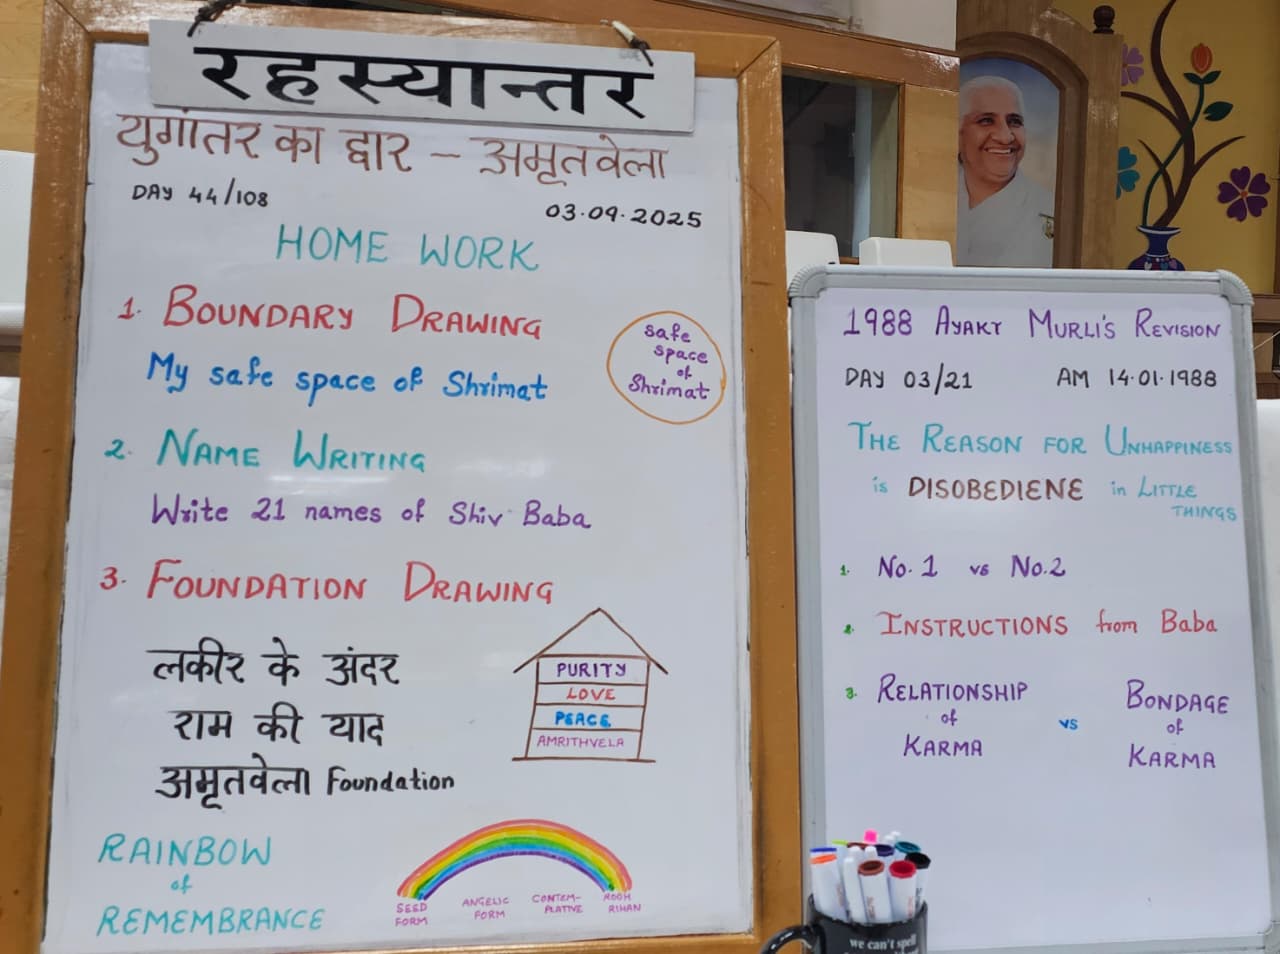 रहस्यान्तर
युगांतर का द्वार – अमृतवेला
DAY 44/108
03.09.2025
HOME WORK
1. BOUNDARY DRAWING
My safe space of Shrimat
safe
space
of
Shrimat
2. NAME WRITING
Write 21 names of Shiv Baba
3. FOUNDATION DRAWING
लकीर के अंदर
राम की याद
अमृतवेला Foundation
PURITY
LOVE
PEACE
AMRITHVELA
RAINBOW
of
REMEMBRANCE
SEED
FORM
ANGELIC
FORM
CONTEM-
PLATIVE
ROOH
RIHAN
1988 AVAKT MURLI'S REVISION
DAY 03/21
AM 14.01.1988
THE REASON FOR UNHAPPINESS
is DISOBEDIENE in LITTLE
THINGS
1. No. 1 vs No.2
2. INSTRUCTIONS from Baba
3. RELATIONSHIP
of
KARMA
vs
BONDAGE
of
KARMA
we can't spell